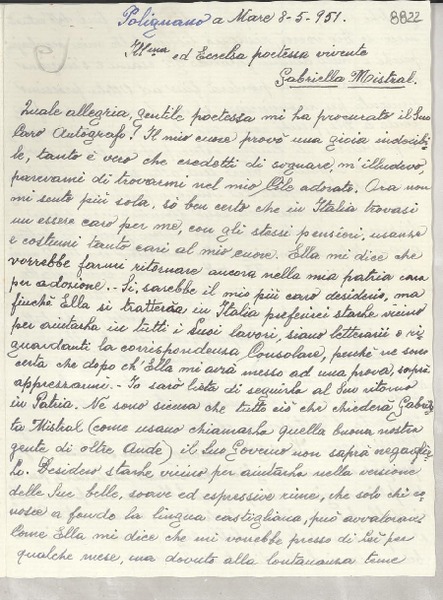 Polignano a Mare 8-5-951.
8822
Ill.ma ed Eccelsa poetessa vivente
Gabriella Mistral.
Quale allegria, gentile poetessa mi ha procurato il Suo
caro Autografo! Il mio cuore provò una gioia indicibi-
le, tanto è vero che credetti di sognare, m'illudevo,
parevami di trovarmi nel mio Cile adorato. Ora non
mi sento più sola, sò ben certo che in Italia trovasi
un essere caro per me, con gli stessi pensieri, usanze
e costumi tanto cari al mio cuore. Ella mi dice che
vorrebbe farmi ritornare ancora nella mia patria cara
per adozione. - Si, sarebbe il mio più caro desiderio, ma
finchè Ella si tratterrà in Italia preferirei starle vicino
per aiutarla in tutti i Suoi lavori, siano letterarii o ri-
guardanti la corrispondenza Consolare, perchè ne sono
certa che dopo ch'Ella mi avrà messo ad una prova, saprà
apprezzarmi. - Io sarò lieta di seguirla al Suo ritorno
in Patria. Ne sono sicura che tutto ciò che chiederà Gabrie-
la Mistral (come usano chiamarla quella buona nostra
gente di oltre Ande) il Suo Governo non saprà negarglie-
lo. Desidero starle vicino per aiutarla nella versione
delle Sue belle, soave ed espressive rime, che solo chi co-
nosce a fondo la lingua castigliana, può avvalorare.
Come Ella mi dice che mi vorrebbe presso di Lei per
qualche mese, ma dovuto alla lontananza teme